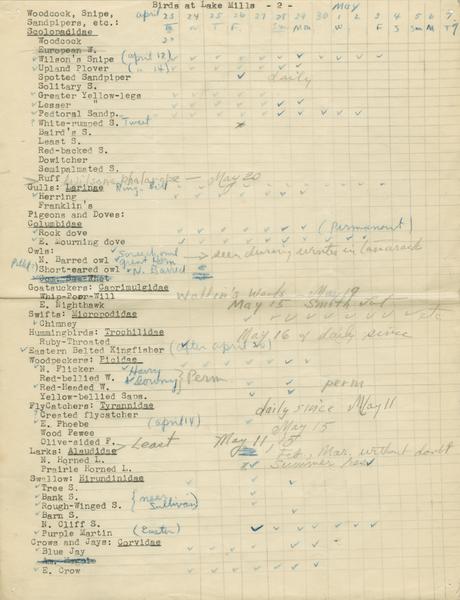 Birds at Lake Mills - 2 -
Woodcock, Snipe, april 23 24 25 26 27 28 29 30 May 1 2 3 4 5 6 7
Sandpipers, etc.:
Scolopacidae
Woodcock
European W.
Wilson's Snipe (april 12)
Upland Plover ( " 14)
Spotted Sandpiper daily
Solitary S.
Greater Yellow-legs
Lesser "
Pectoral Sandp.
White-rumped S. Tweet
Baird's S.
Least S.
Red-backed S.
Dowitcher
Semipalmated S.
Ruff Wilsons phalarope — May 20
Gulls: Larinae Ring-bill
Herring
Franklin's
Pigeons and Doves:
Columbidae
Rock dove (Permanent)
E. Mourning dove
Owls: Screech owl
N. Barred owl great Horn → seen during winter in tamarack
Short-eared owl N. Barred
Goatsuckers: Caprimulgidae
Whip-Poor-Will Walton's Woods - May 19
E. Nighthawk May 15
Swifts: Micropodidae
Chimney
Hummingbirds: Trochilidae May 16 & daily since
Ruby-Throated
Eastern Belted Kingfisher (after april 20)
Woodpeckers: Picidae
N. Flicker Hairy
Red-bellied W. Downy } Perm
Red-Headed W. perm
Yellow-bellied Saps.
FlyCatchers: Tyrannidae daily since May 11
Crested flycatcher
E. Phoebe (april 14)
Wood Pewee May 15
Olive-sided F. > Least May 11, 15
Larks: Alaudidae Feb, Mar, without doubt
N. Horned L. Summer
Prairie Horned L.
Swallow: Hirundinidae
Tree S.
Bank S. { near
Rough-Winged S. Sullivan }
Barn S.
N. Cliff S.
Purple Martin (Easter)
Crows and Jays: Corvidae
Blue Jay
E. Crow